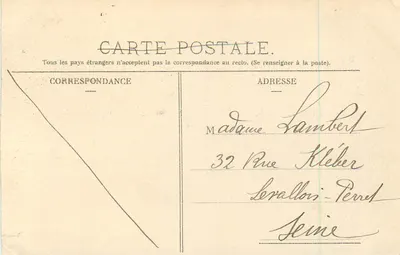 CARTE POSTALE.
Tous les pays étrangers n'acceptent pas la correspondance au recto. (Se renseigner à la poste).
CORRESPONDANCE
ADRESSE
Madame Lambert
32 Rue Kléber
Levallois-Perret
Seine